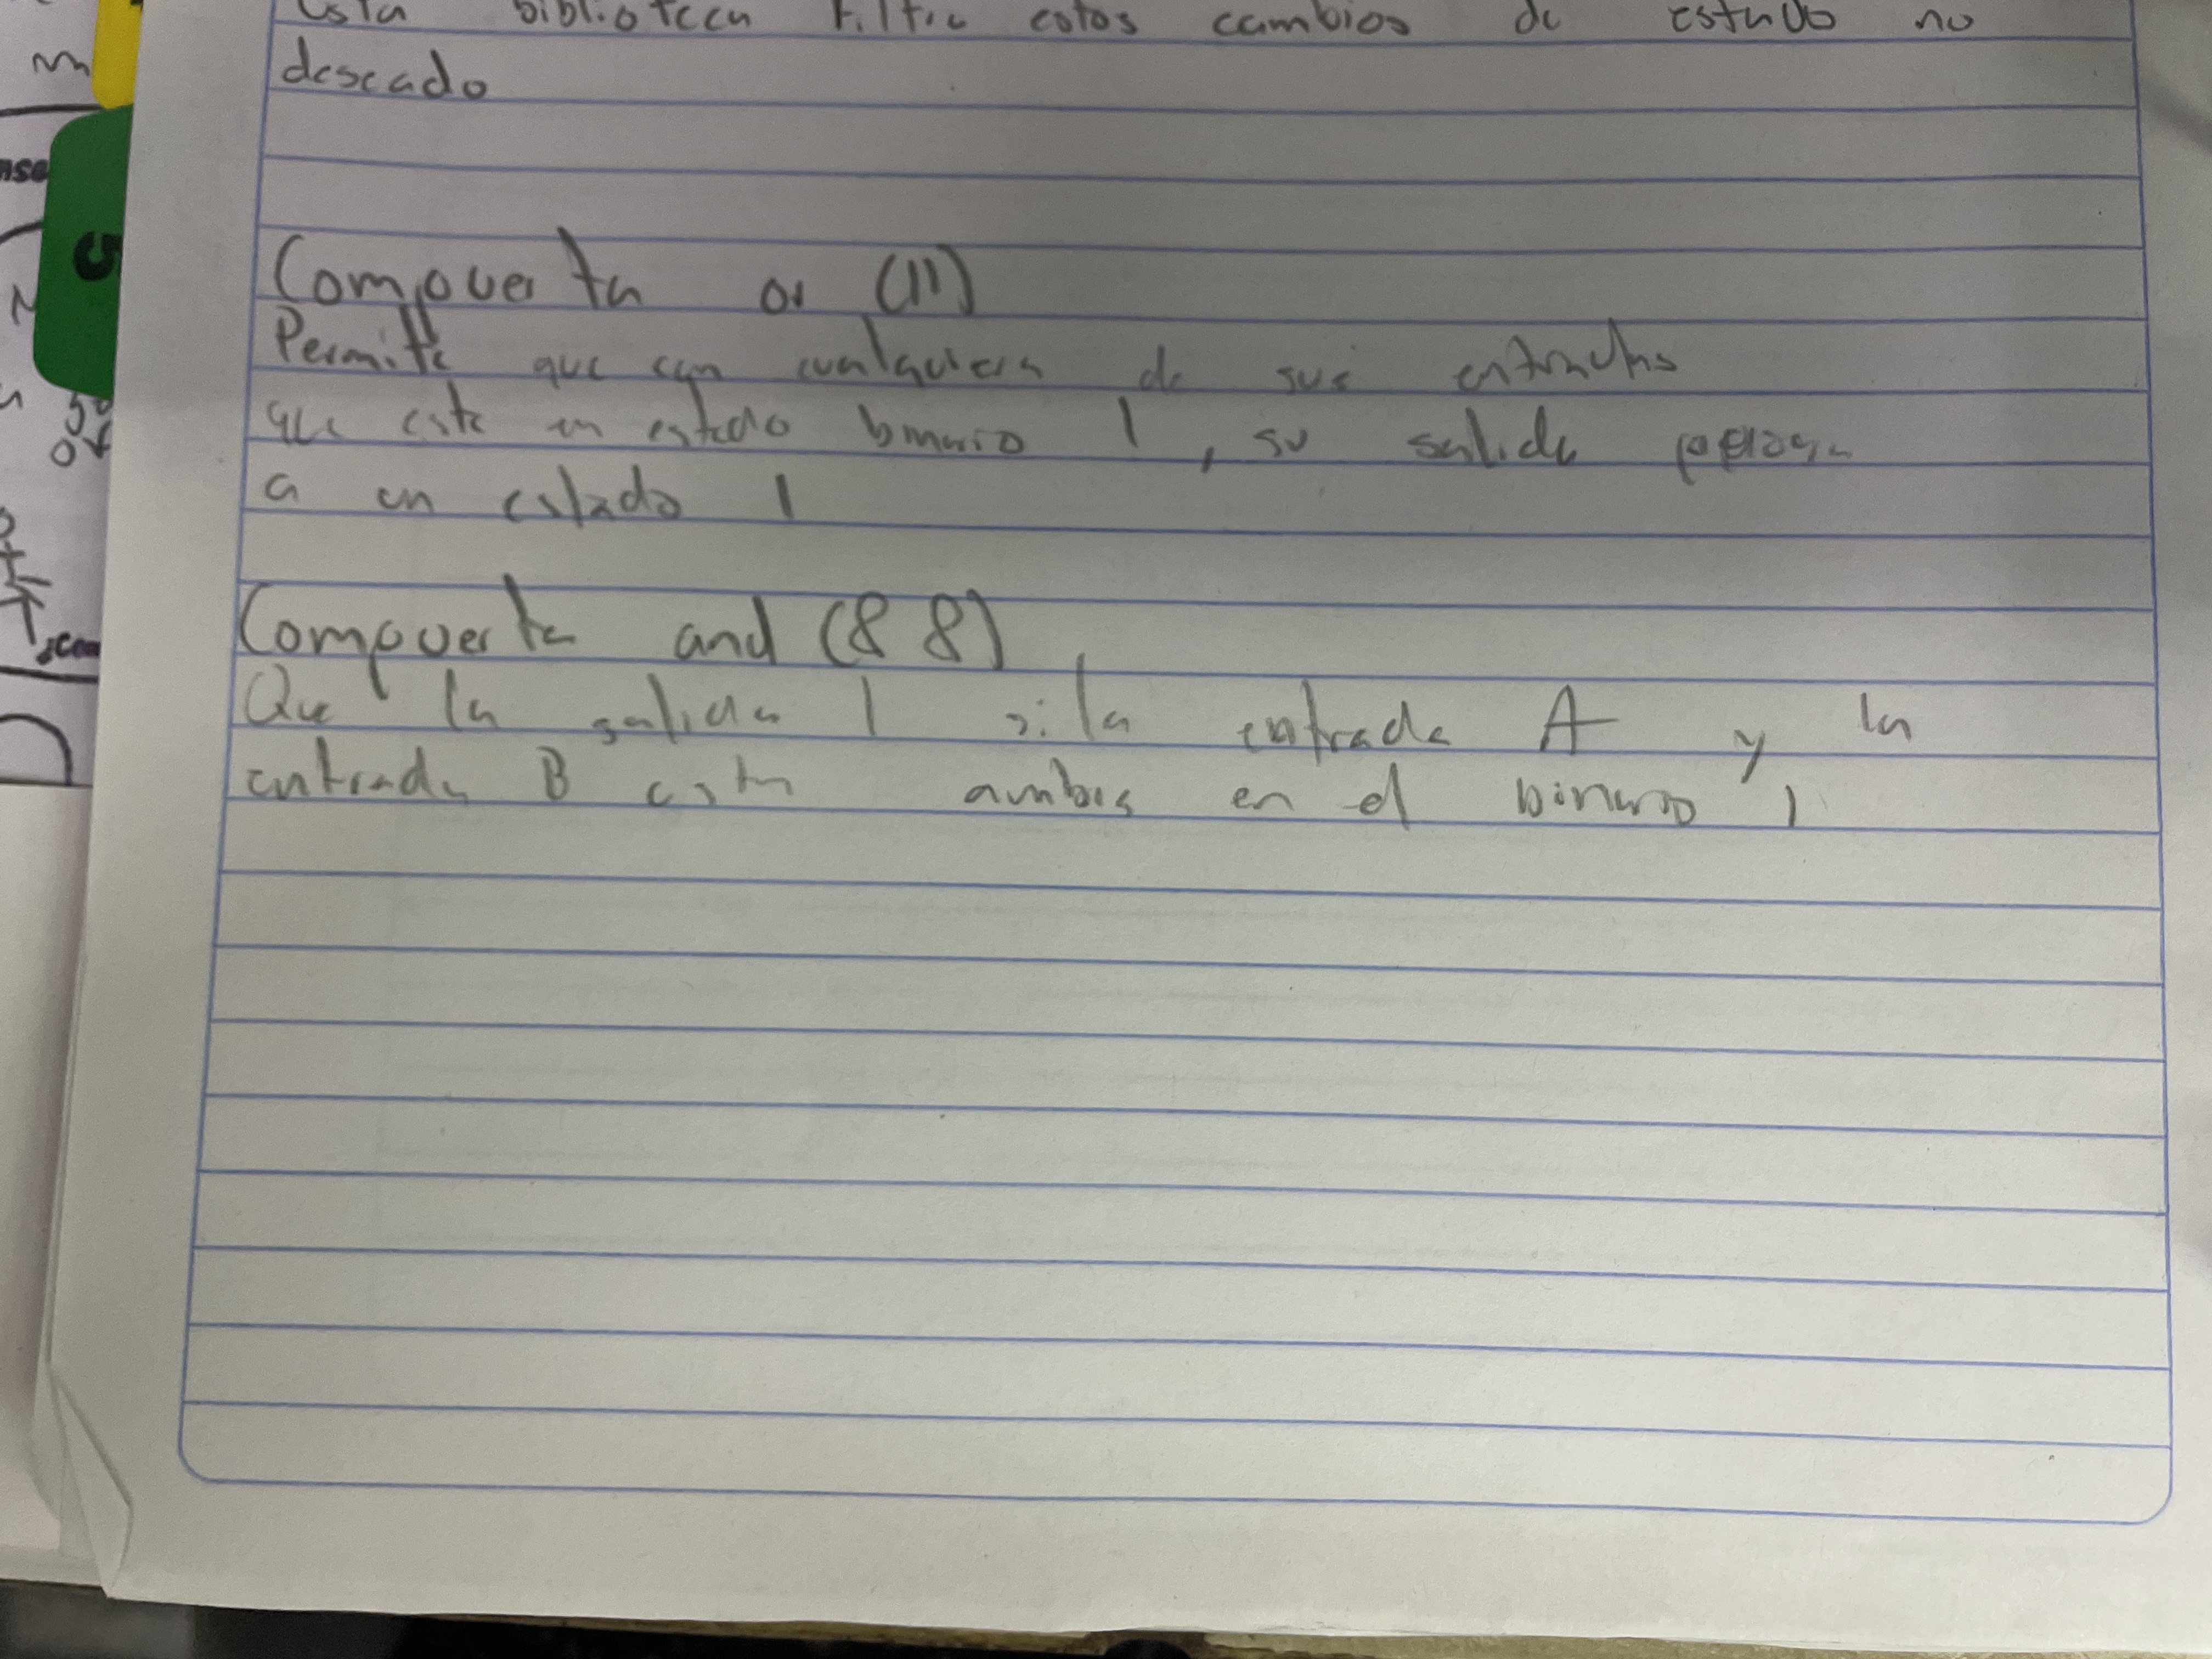 Esta biblioteca filtra estos cambios de estado no
deseado
Compuerta or (||)
Permite que con cualquiera de sus entradas
que este en estado binario 1, su salida
a un estado 1
Compuerta and (&&)
Que la salida 1 si la entrada A y la
entrada B esta ambas en el binario 1
5